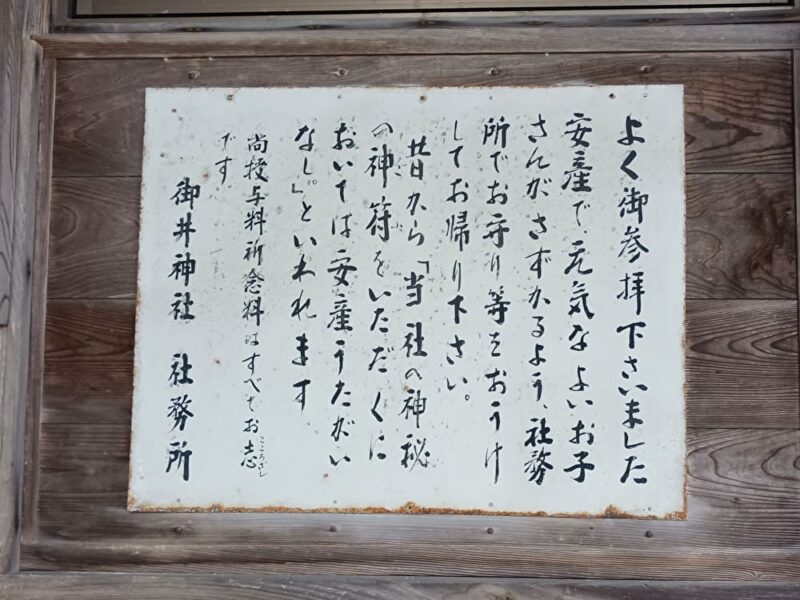 よく御参拝下さいました
安産で元気なよいお子
さんがさずかるよう、社務
所でお守り等をおうけ
してお帰り下さい。
昔から「当社の神秘
の神符をいただくに
おいては安産うたがい
なし」といわれます
尚授与料祈念料はすべてお志
こころざし
です。
御井神社 社務所